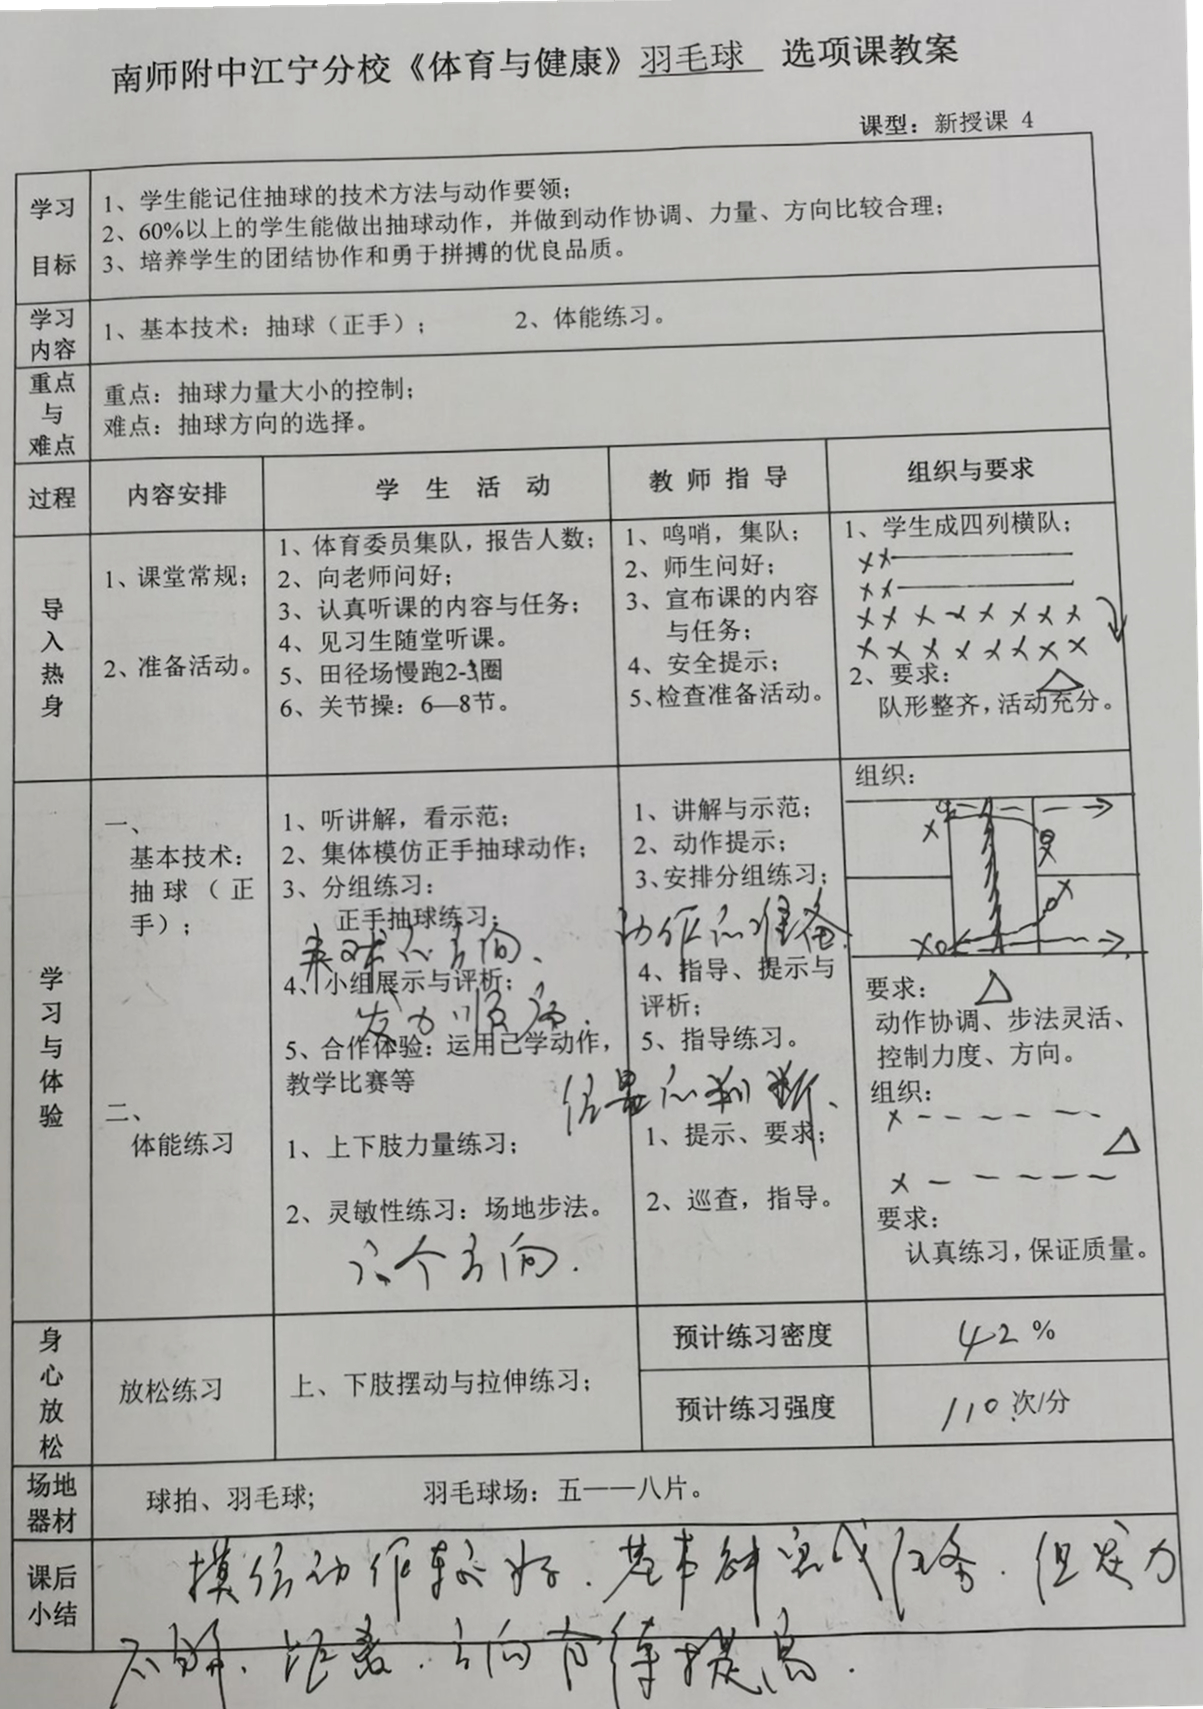 南师附中江宁分校《体育与健康》羽毛球 选项课教案
课型：新授课 4
学习
目标
1、学生能记住抽球的技术方法与动作要领；
2、60%以上的学生能做出抽球动作，并做到动作协调、力量、方向比较合理；
3、培养学生的团结协作和勇于拼搏的优良品质。
学习
内容
1、基本技术：抽球（正手）； 2、体能练习。
重点
与
难点
重点：抽球力量大小的控制；
难点：抽球方向的选择。
过程 内容安排 学 生 活 动 教 师 指 导 组织与要求
导
入
热
身
1、课堂常规；
2、准备活动。
1、体育委员集队，报告人数；
2、向老师问好；
3、认真听课的内容与任务；
4、见习生随堂听课。
5、田径场慢跑2-3圈
6、关节操：6—8节。
1、鸣哨，集队；
2、师生问好；
3、宣布课的内容
与任务；
4、安全提示；
5、检查准备活动。
1、学生成四列横队；
2、要求：
队形整齐，活动充分。
学
习
与
体
验
一、
基本技术：
抽球（正
手）；
二、
体能练习
1、听讲解，看示范；
2、集体模仿正手抽球动作；
3、分组练习：
正手抽球练习；
来球的方向、
4、小组展示与评析；
发力顺序.
5、合作体验：运用已学动作，
教学比赛等
1、上下肢力量练习；
2、灵敏性练习：场地步法。
六个方向.
1、讲解与示范；
2、动作提示；
3、安排分组练习；
动作的准备.
4、指导、提示与
评析；
5、指导练习。
位置的判断、
1、提示、要求；
2、巡查，指导。
组织：
要求：
动作协调、步法灵活、
控制力度、方向。
组织：
要求：
认真练习，保证质量。
身
心
放
松
放松练习
上、下肢摆动与拉伸练习；
预计练习密度 42 %
预计练习强度 110 次/分
场地
器材
球拍、羽毛球； 羽毛球场：五——八片。
课后
小结
模仿动作较好.基本能完成任务.但发力
不够、距离.方向有待提高.